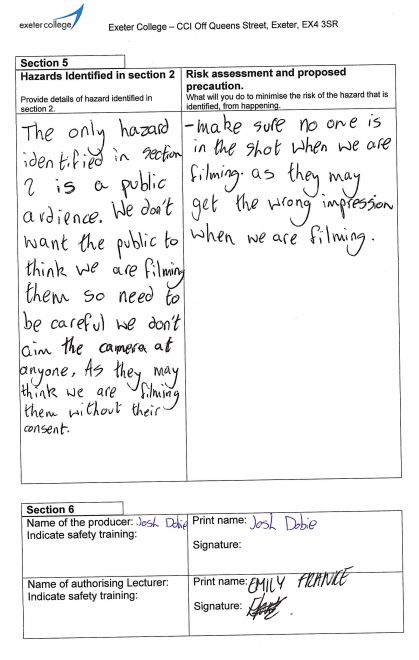 exeter college
Exeter College – CCI Off Queens Street, Exeter, EX4 3SR
Section 5
Hazards Identified in section 2
Provide details of hazard identified in
section 2.
Risk assessment and proposed
precaution.
What will you do to minimise the risk of the hazard that is
identified, from happening.
The only hazard
identified in section
2 is a public
audience. We don't
want the public to
think we are filming
them so need to
be careful we don't
aim the camera at
anyone, As they may
think we are filming
them without their
consent.
-make sure no one is
in the shot when we are
filming. as they may
get the wrong impression
when we are filming.
Section 6
Name of the producer: Josh Dobie
Indicate safety training:
Print name: Josh Dobie
Signature:
Name of authorising Lecturer:
Indicate safety training:
Print name: EMILY FRANCE
Signature: